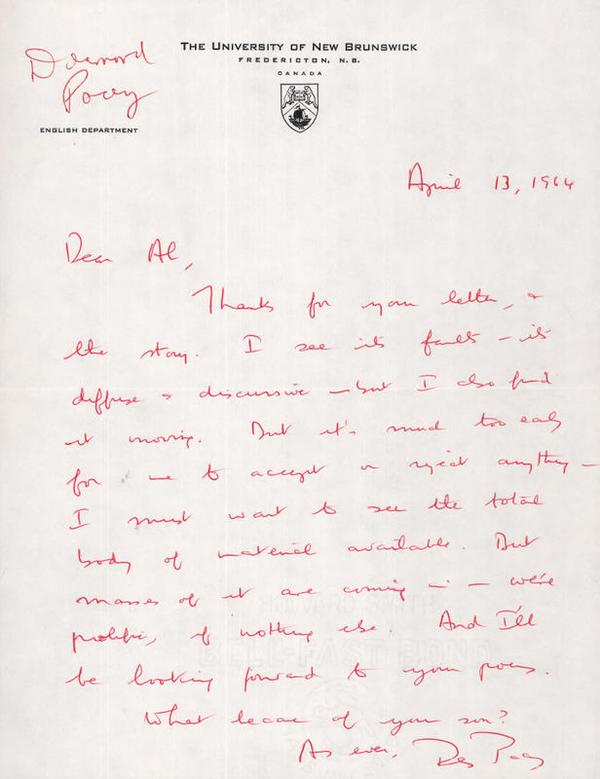 Desmond
Pacey
THE UNIVERSITY OF NEW BRUNSWICK
FREDERICTON, N.B.
CANADA
ENGLISH DEPARTMENT
April 13, 1964
Dear Al,
Thanks for your letter, &
the story. I see its faults – it's
diffuse & discursive – but I also find
it moving. But it's much too early
for me to accept or reject anything –
I must wait to see the total
body of material available. But
masses of it are coming in – we're
prolific, if nothing else. And I'll
be looking forward to your poems.
What became of your son?
As ever, Des Pacey